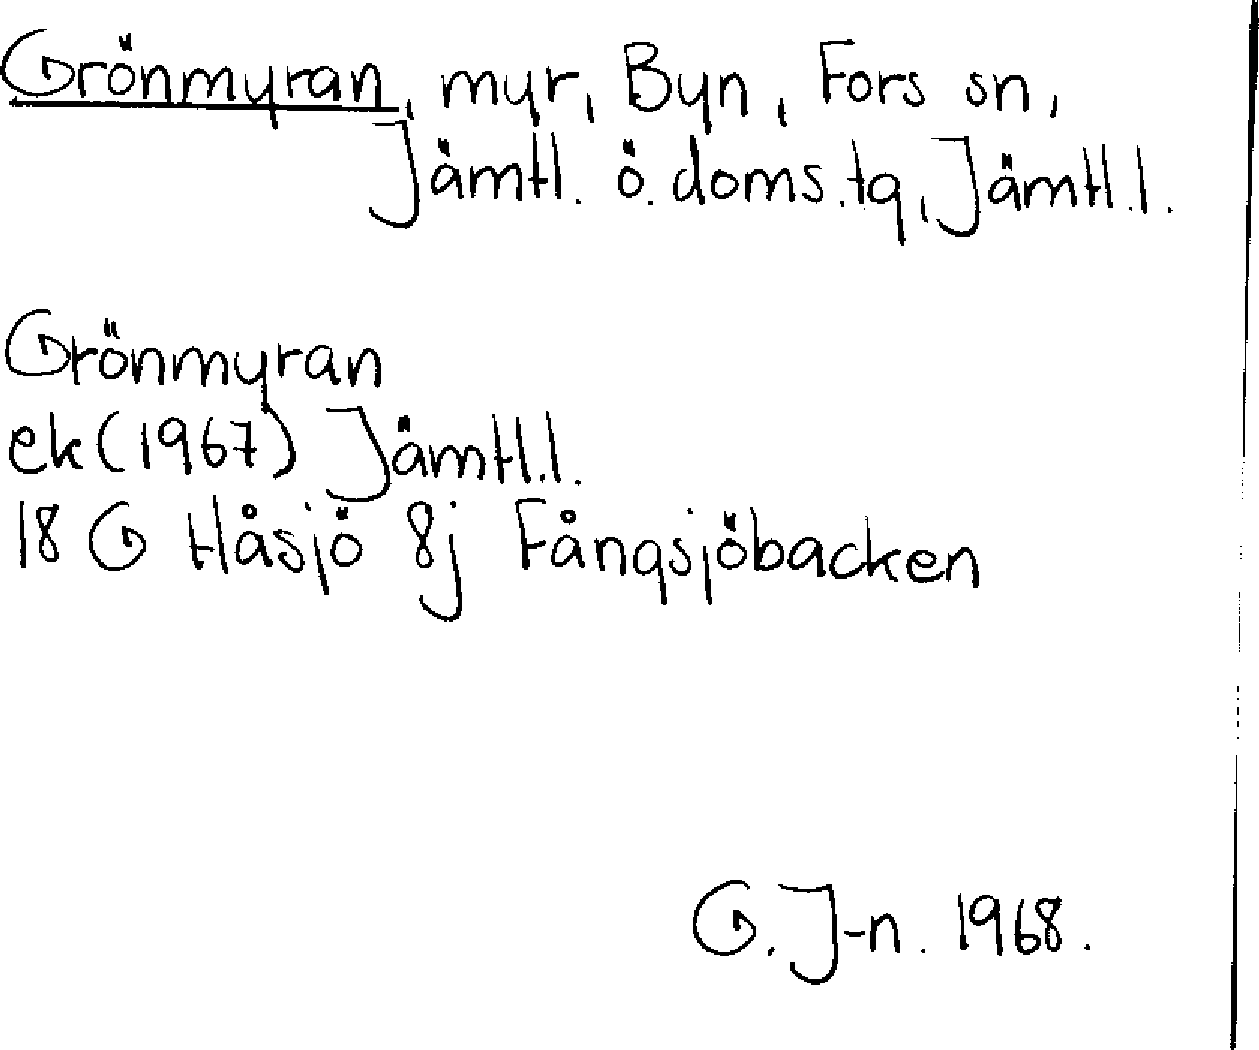 Grönmyran, myr, Byn, Fors sn,
Jämtl. ö. doms.tg, Jämtl.l.
Grönmyran
ek (1967) Jämtl.l.
18 G Håsjö 8j Fångsjöbacken
G. J-n. 1968.